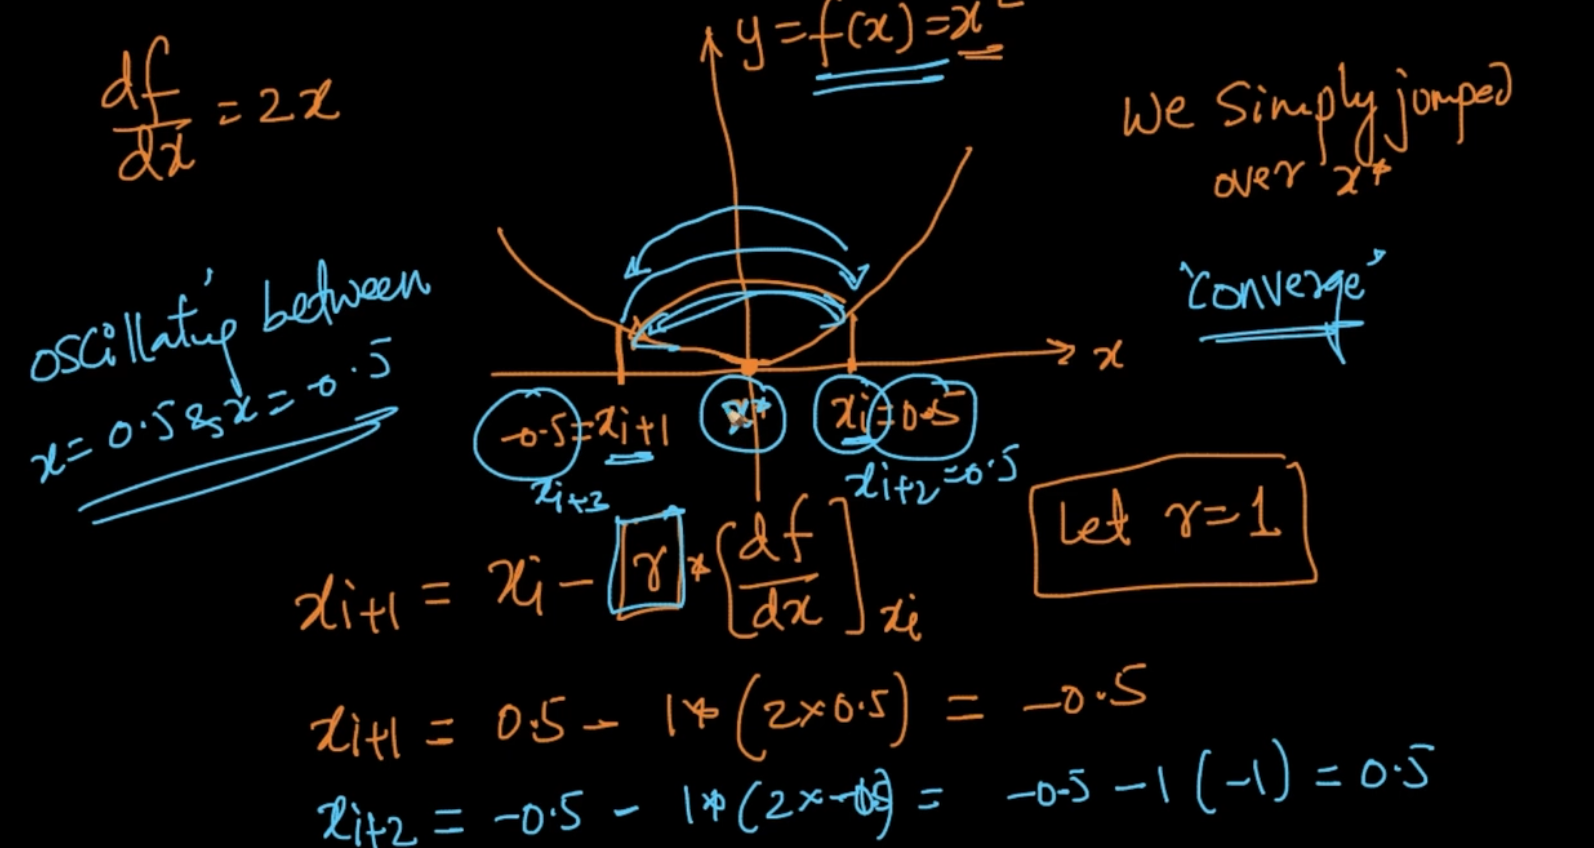 y = f(x) = x²
df/dx = 2x
We Simply jumped
over x*
"Converge"
oscillating between
x = 0.5 & x = -0.5
x
-0.5 = xi+1
x*
xi = 0.5
xi+3
xi+2 = 0.5
Let r = 1
xi+1 = xi - r * [df/dx]xi
xi+1 = 0.5 - 1* (2×0.5) = -0.5
xi+2 = -0.5 - 1* (2×-0.5) = -0.5 - 1 (-1) = 0.5